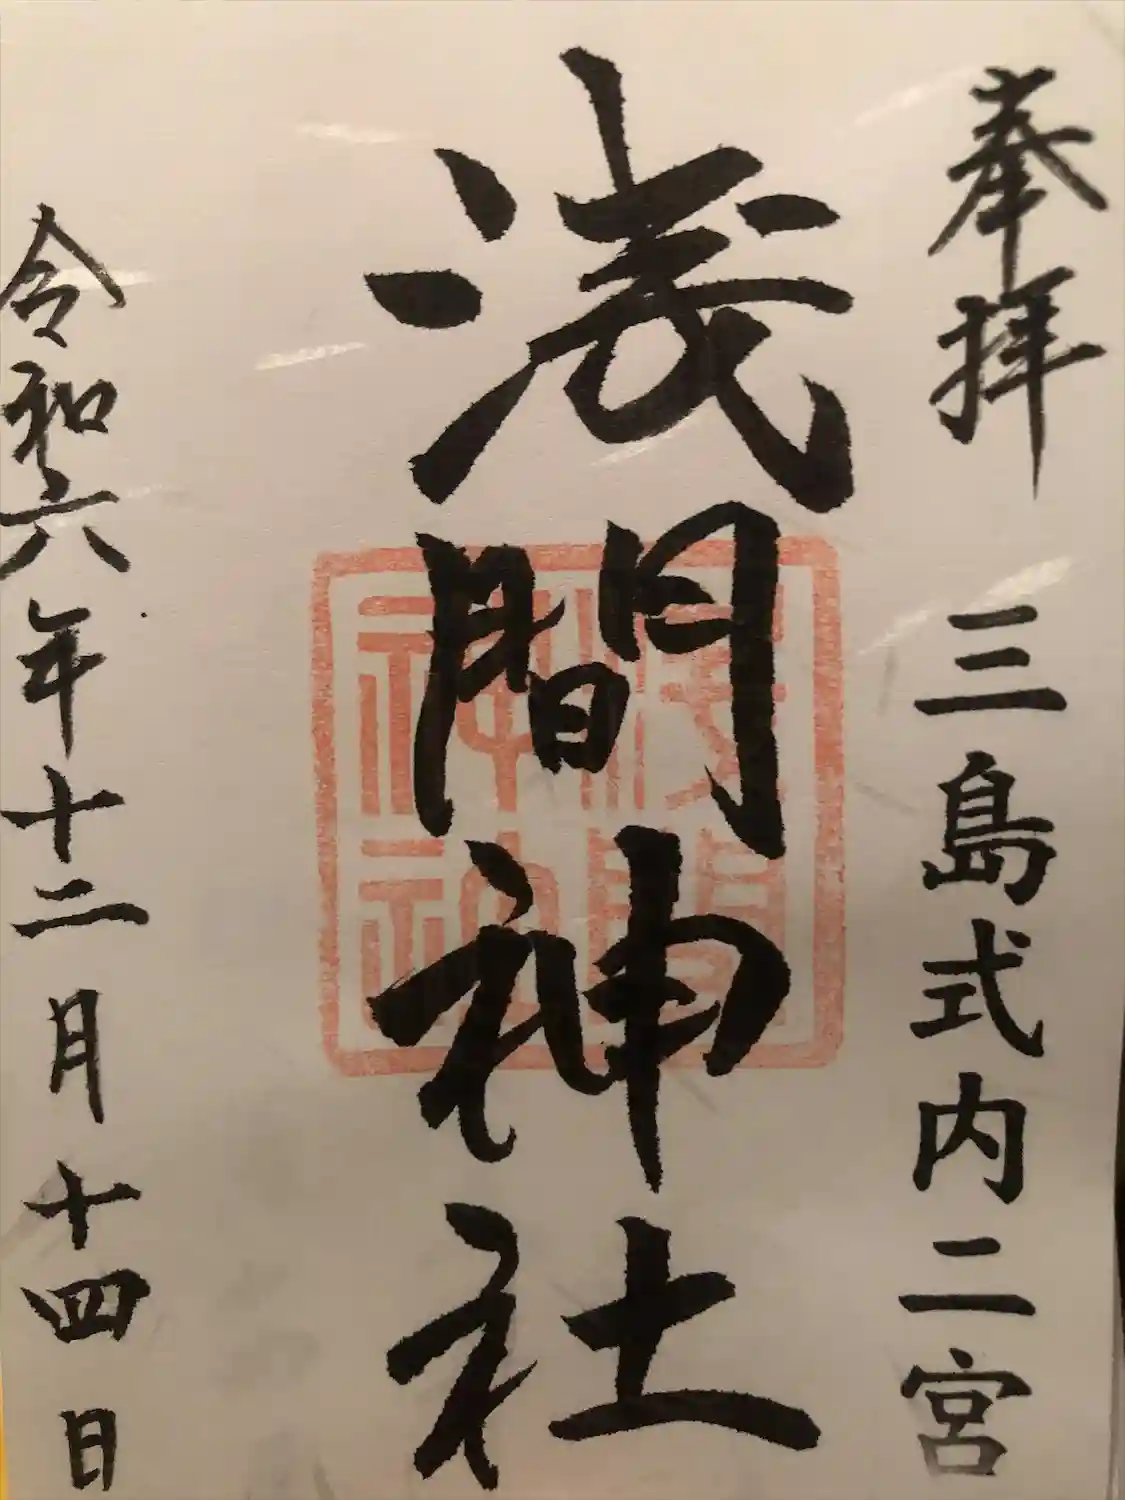 奉拝
三島式内二宮
浅間神社
浅間
神社
令和六年十二月十四日